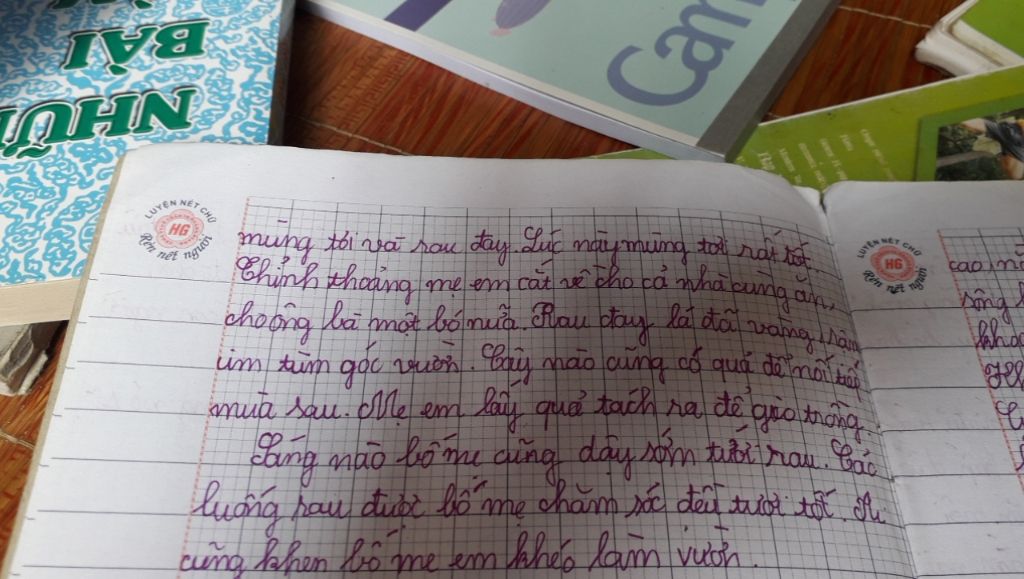 NHỮN
BÀI
Cam
LUYỆN NÉT CHỮ
HG
Rèn nết người
mùng tơi và rau đay. Lúc này mùng tơi rất tốt.
Thỉnh thoảng mẹ em cắt về cho cả nhà cùng ăn,
cho ông bà một bó nữa. Rau đay lá đã vàng, rậm
um tùm góc vườn. Cây nào cũng có quả để nối tiếp
mùa sau. Mẹ em lấy quả tách ra để gieo trồng.
Sáng nào bố mẹ cũng dậy sớm tưới rau. Các
luống rau được bố mẹ chăm sóc đều tươi tốt. Ai
cũng khen bố mẹ em khéo làm vườn.
LUYỆN NÉT CHỮ
HG
Rèn nết người